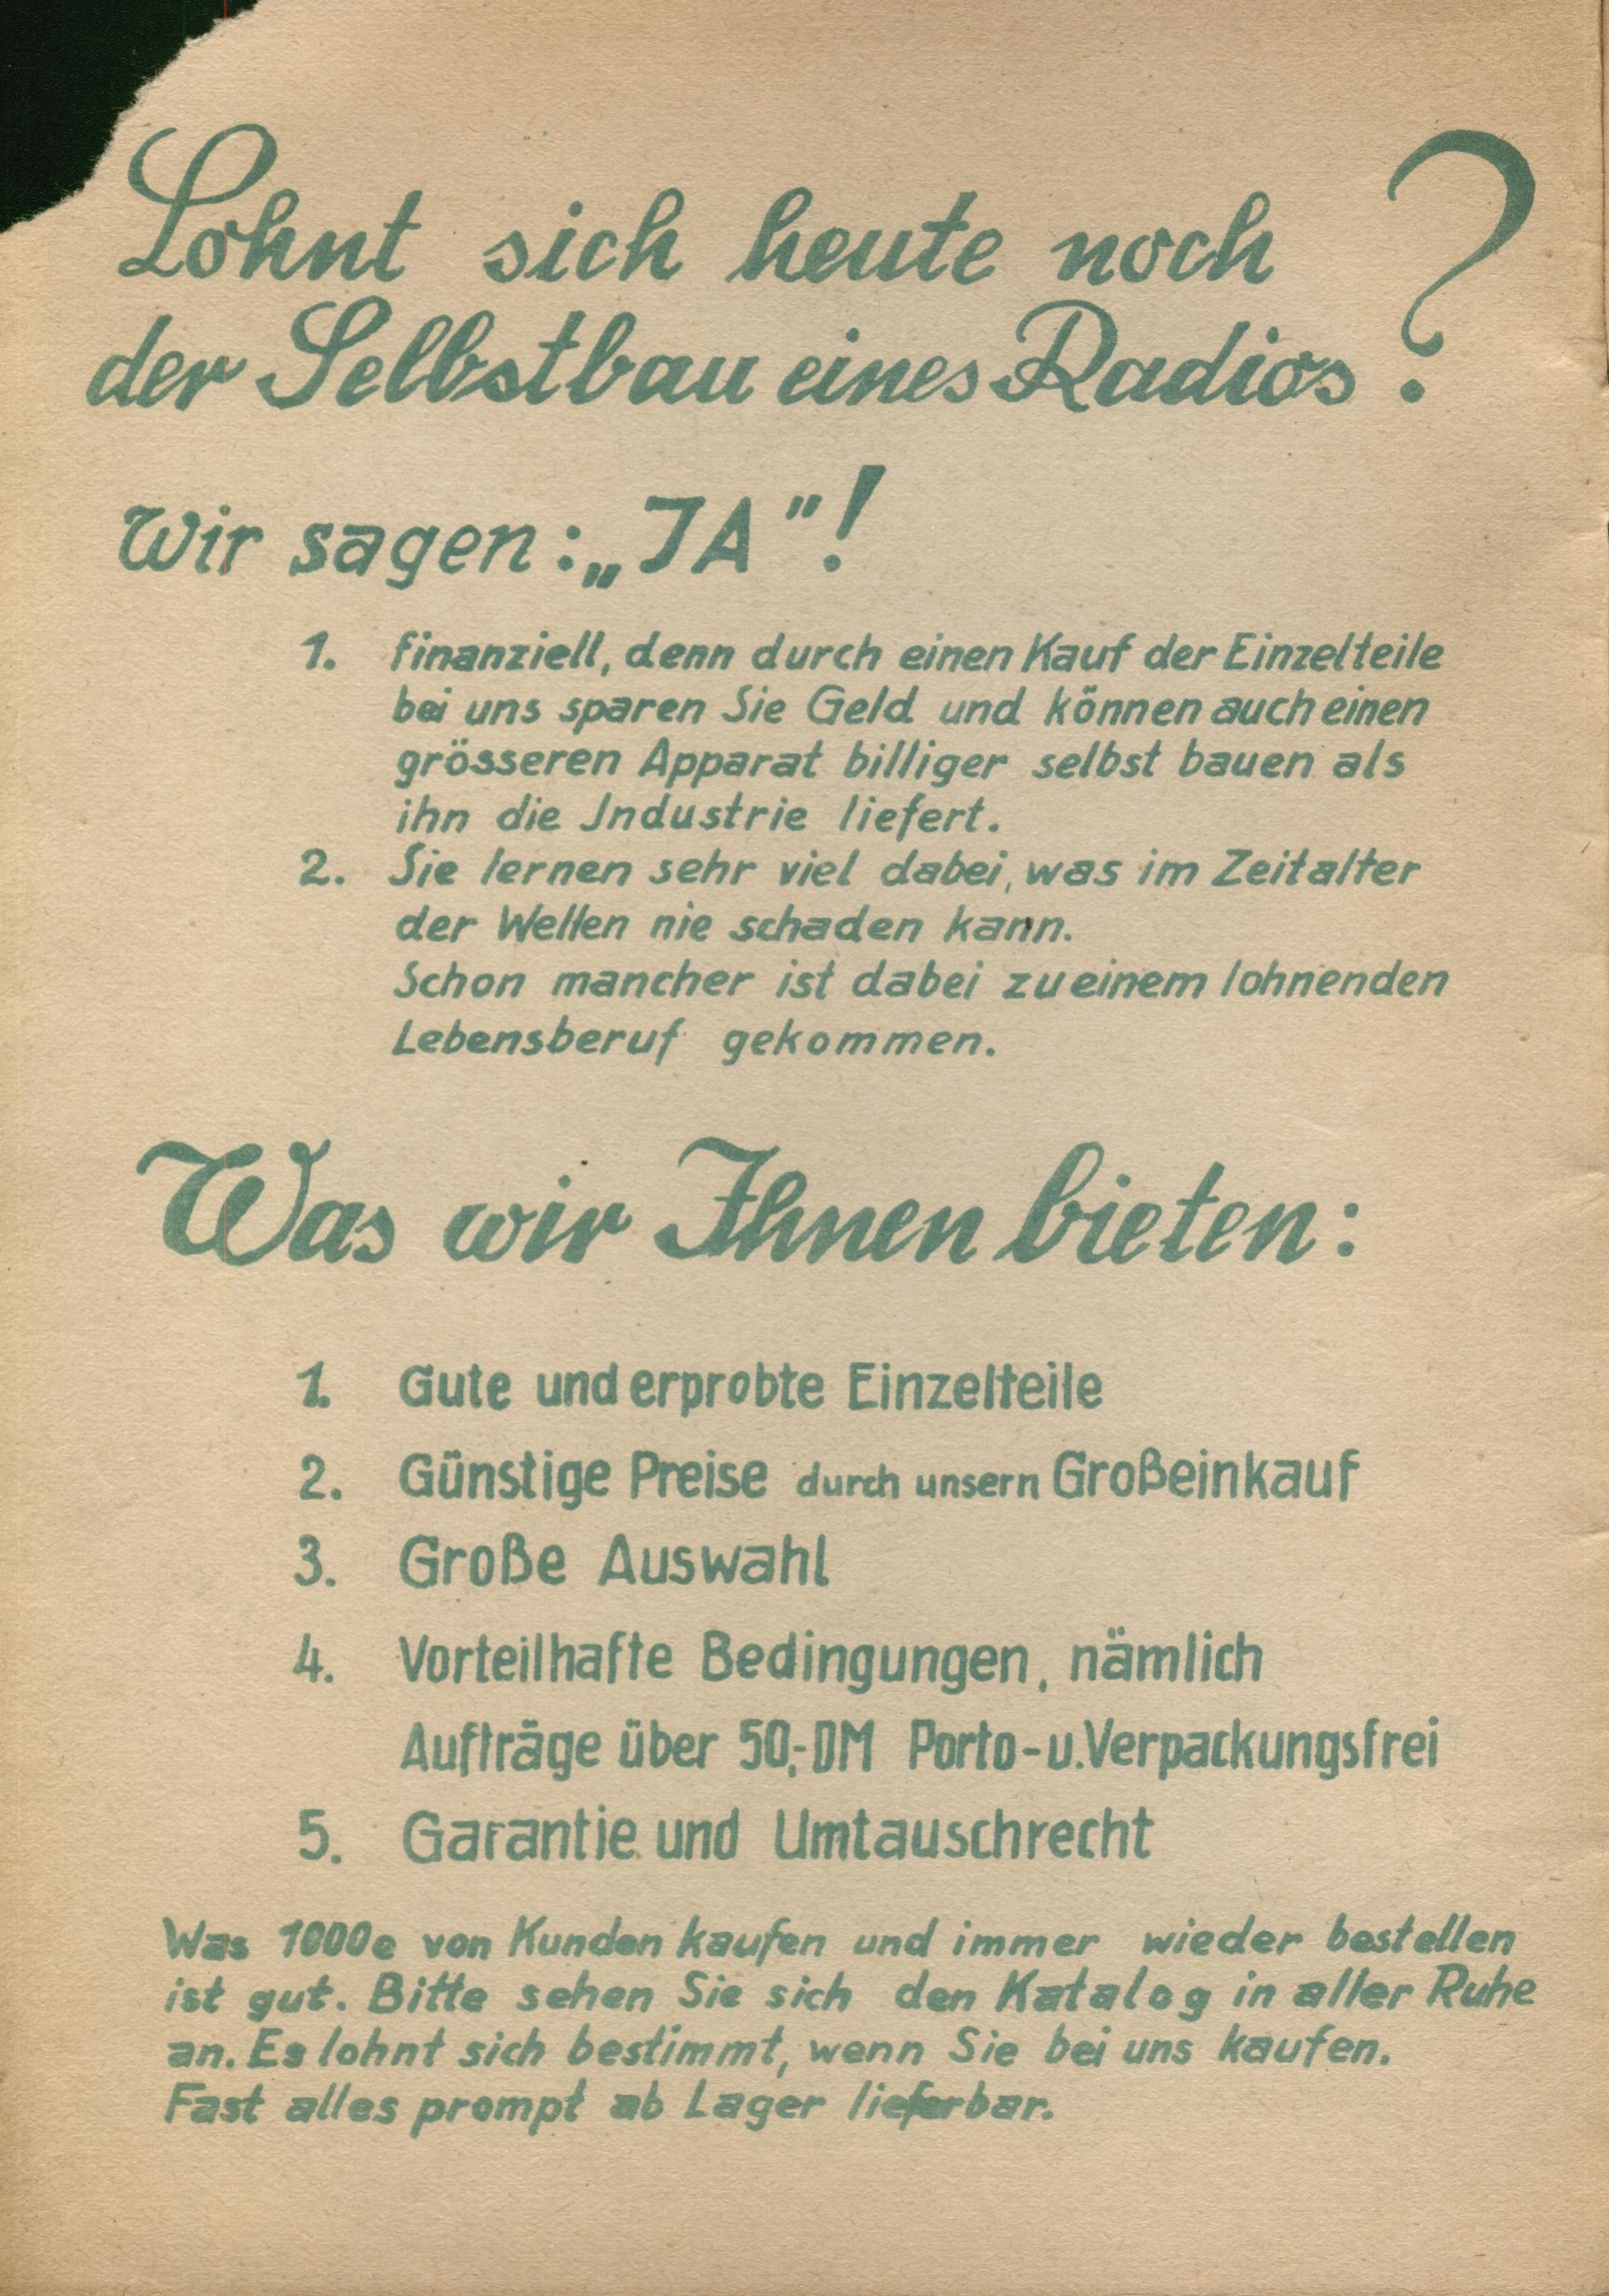 Lohnt sich heute noch
der Selbstbau eines Radios?
Wir sagen: „JA"!
1. finanziell, denn durch einen Kauf der Einzelteile
bei uns sparen Sie Geld und können auch einen
grösseren Apparat billiger selbst bauen als
ihn die Industrie liefert.
2. Sie lernen sehr viel dabei, was im Zeitalter
der Wellen nie schaden kann.
Schon mancher ist dabei zu einem lohnenden
Lebensberuf gekommen.
Was wir Ihnen bieten:
1. Gute und erprobte Einzelteile
2. Günstige Preise durch unsern Großeinkauf
3. Große Auswahl
4. Vorteilhafte Bedingungen, nämlich
Aufträge über 50,- DM Porto- u. Verpackungsfrei
5. Garantie und Umtauschrecht
Was 1000e von Kunden kaufen und immer wieder bestellen
ist gut. Bitte sehen Sie sich den Katalog in aller Ruhe
an. Es lohnt sich bestimmt, wenn Sie bei uns kaufen.
Fast alles prompt ab Lager lieferbar.